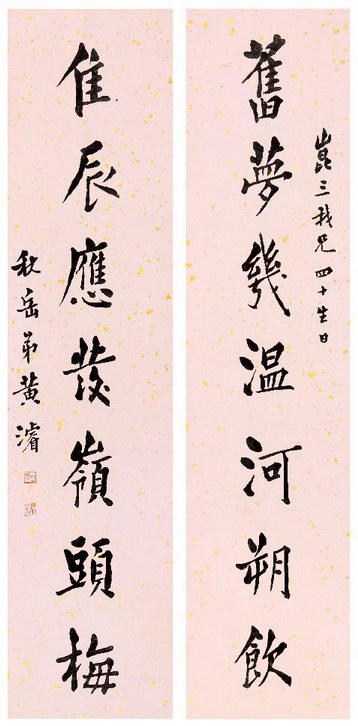 崑三我兄四十生日
舊夢幾温河朔飲
隹辰應發嶺頭梅
秋岳弟黄濬